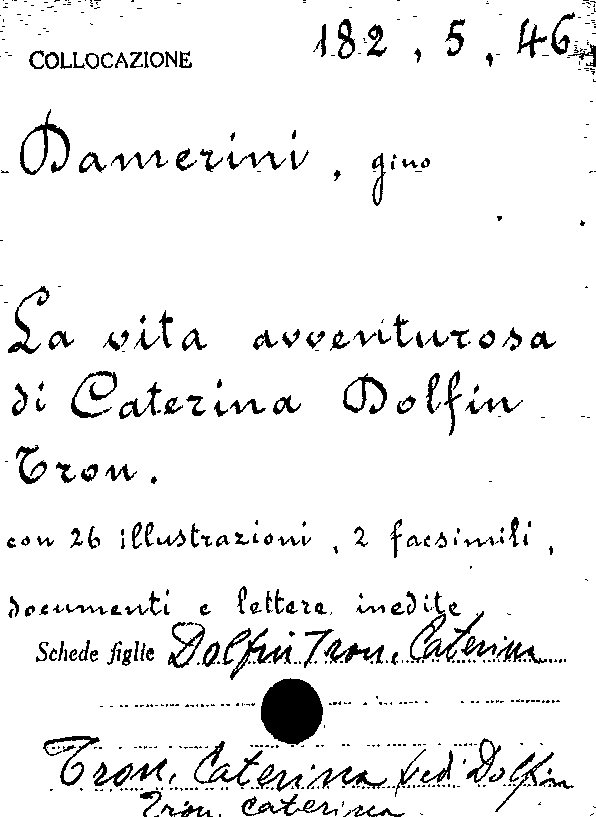 COLLOCAZIONE 182, 5, 46
Damerini, gino
La vita avventurosa
di Caterina Dolfin
Tron.
con 26 illustrazioni, 2 facsimili,
documenti e lettere inedite
Schede figlie Dolfin Tron, Caterina
Tron, Caterina vedi Dolfin
Tron, Caterina